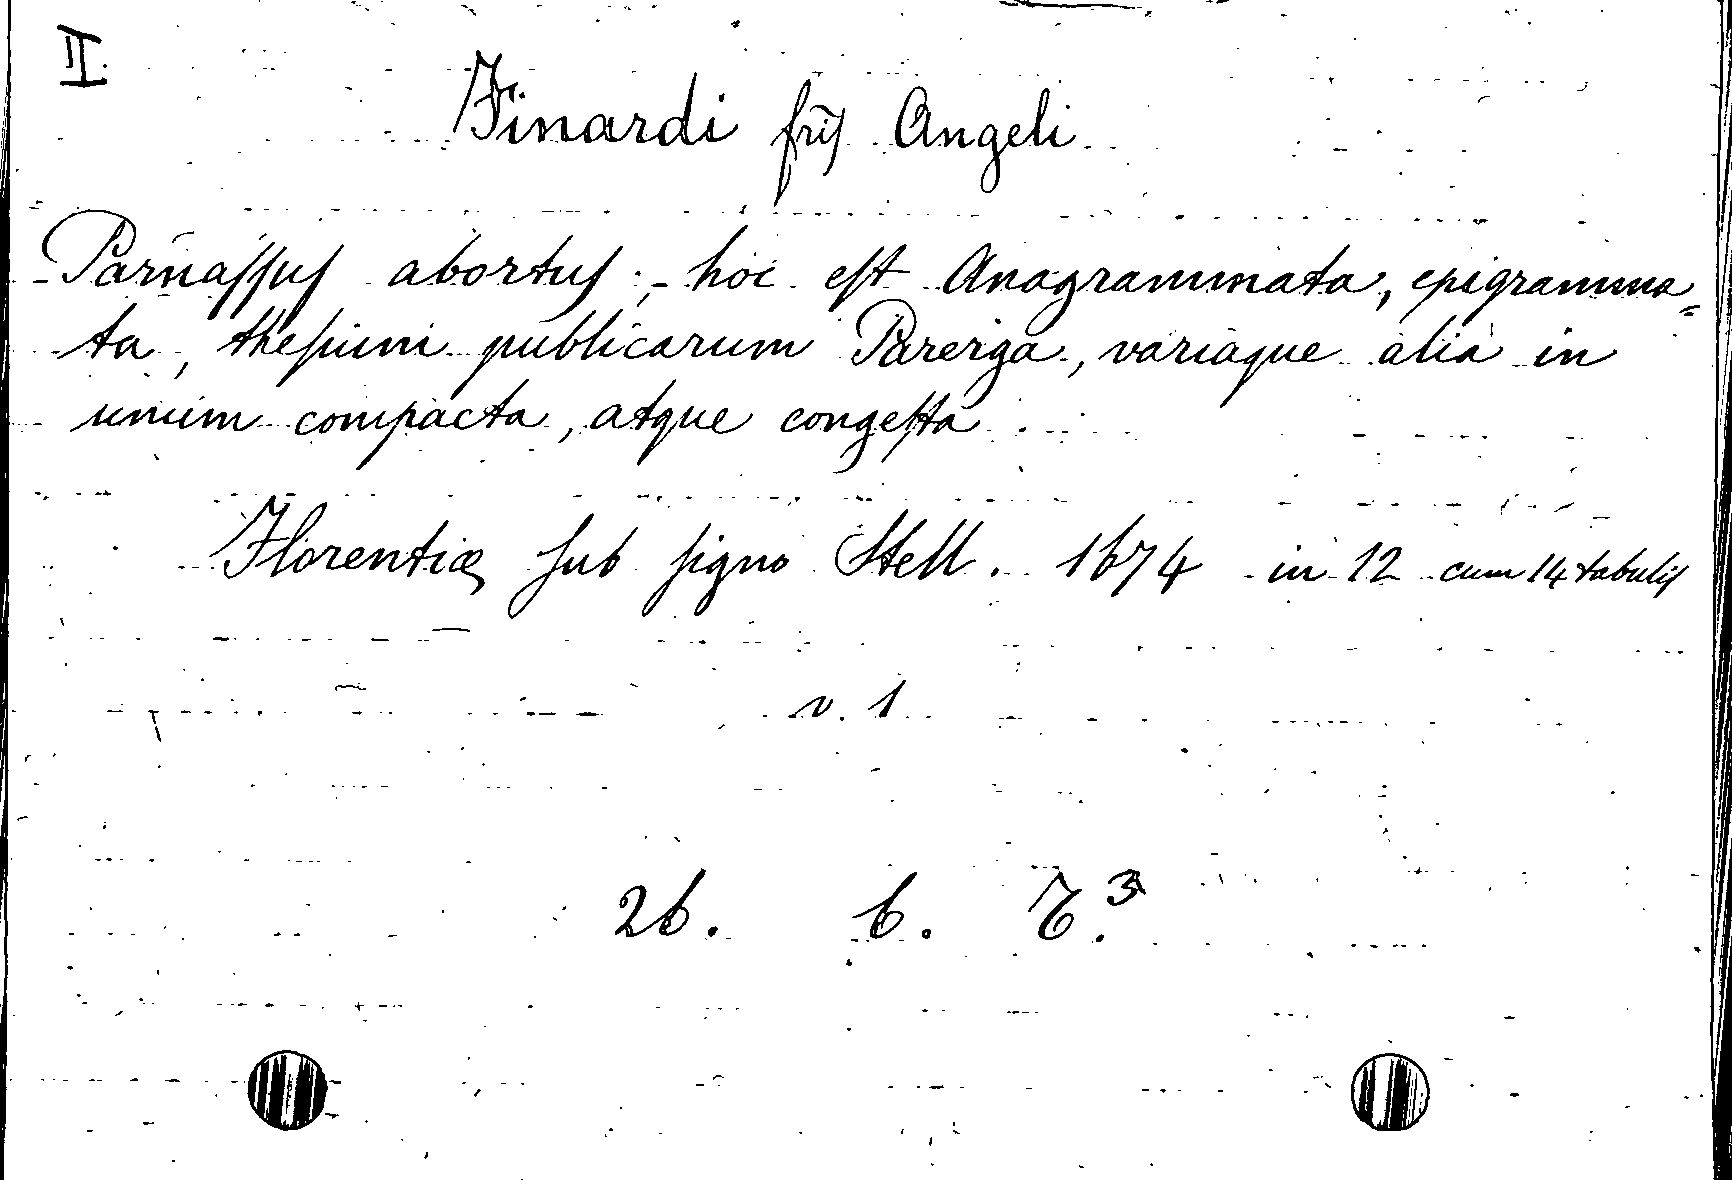 II.
Finardi frīs Angeli
Parnassus abortus, hoc est Anagrammata, epigramma=
ta, thesium publicarum Parerga, variaque alia in
unum compacta, atque congesta
Florentiæ sub signo Stell. 1674 in 12 cum 14 tabulis
v. 1
26. 6. E.³